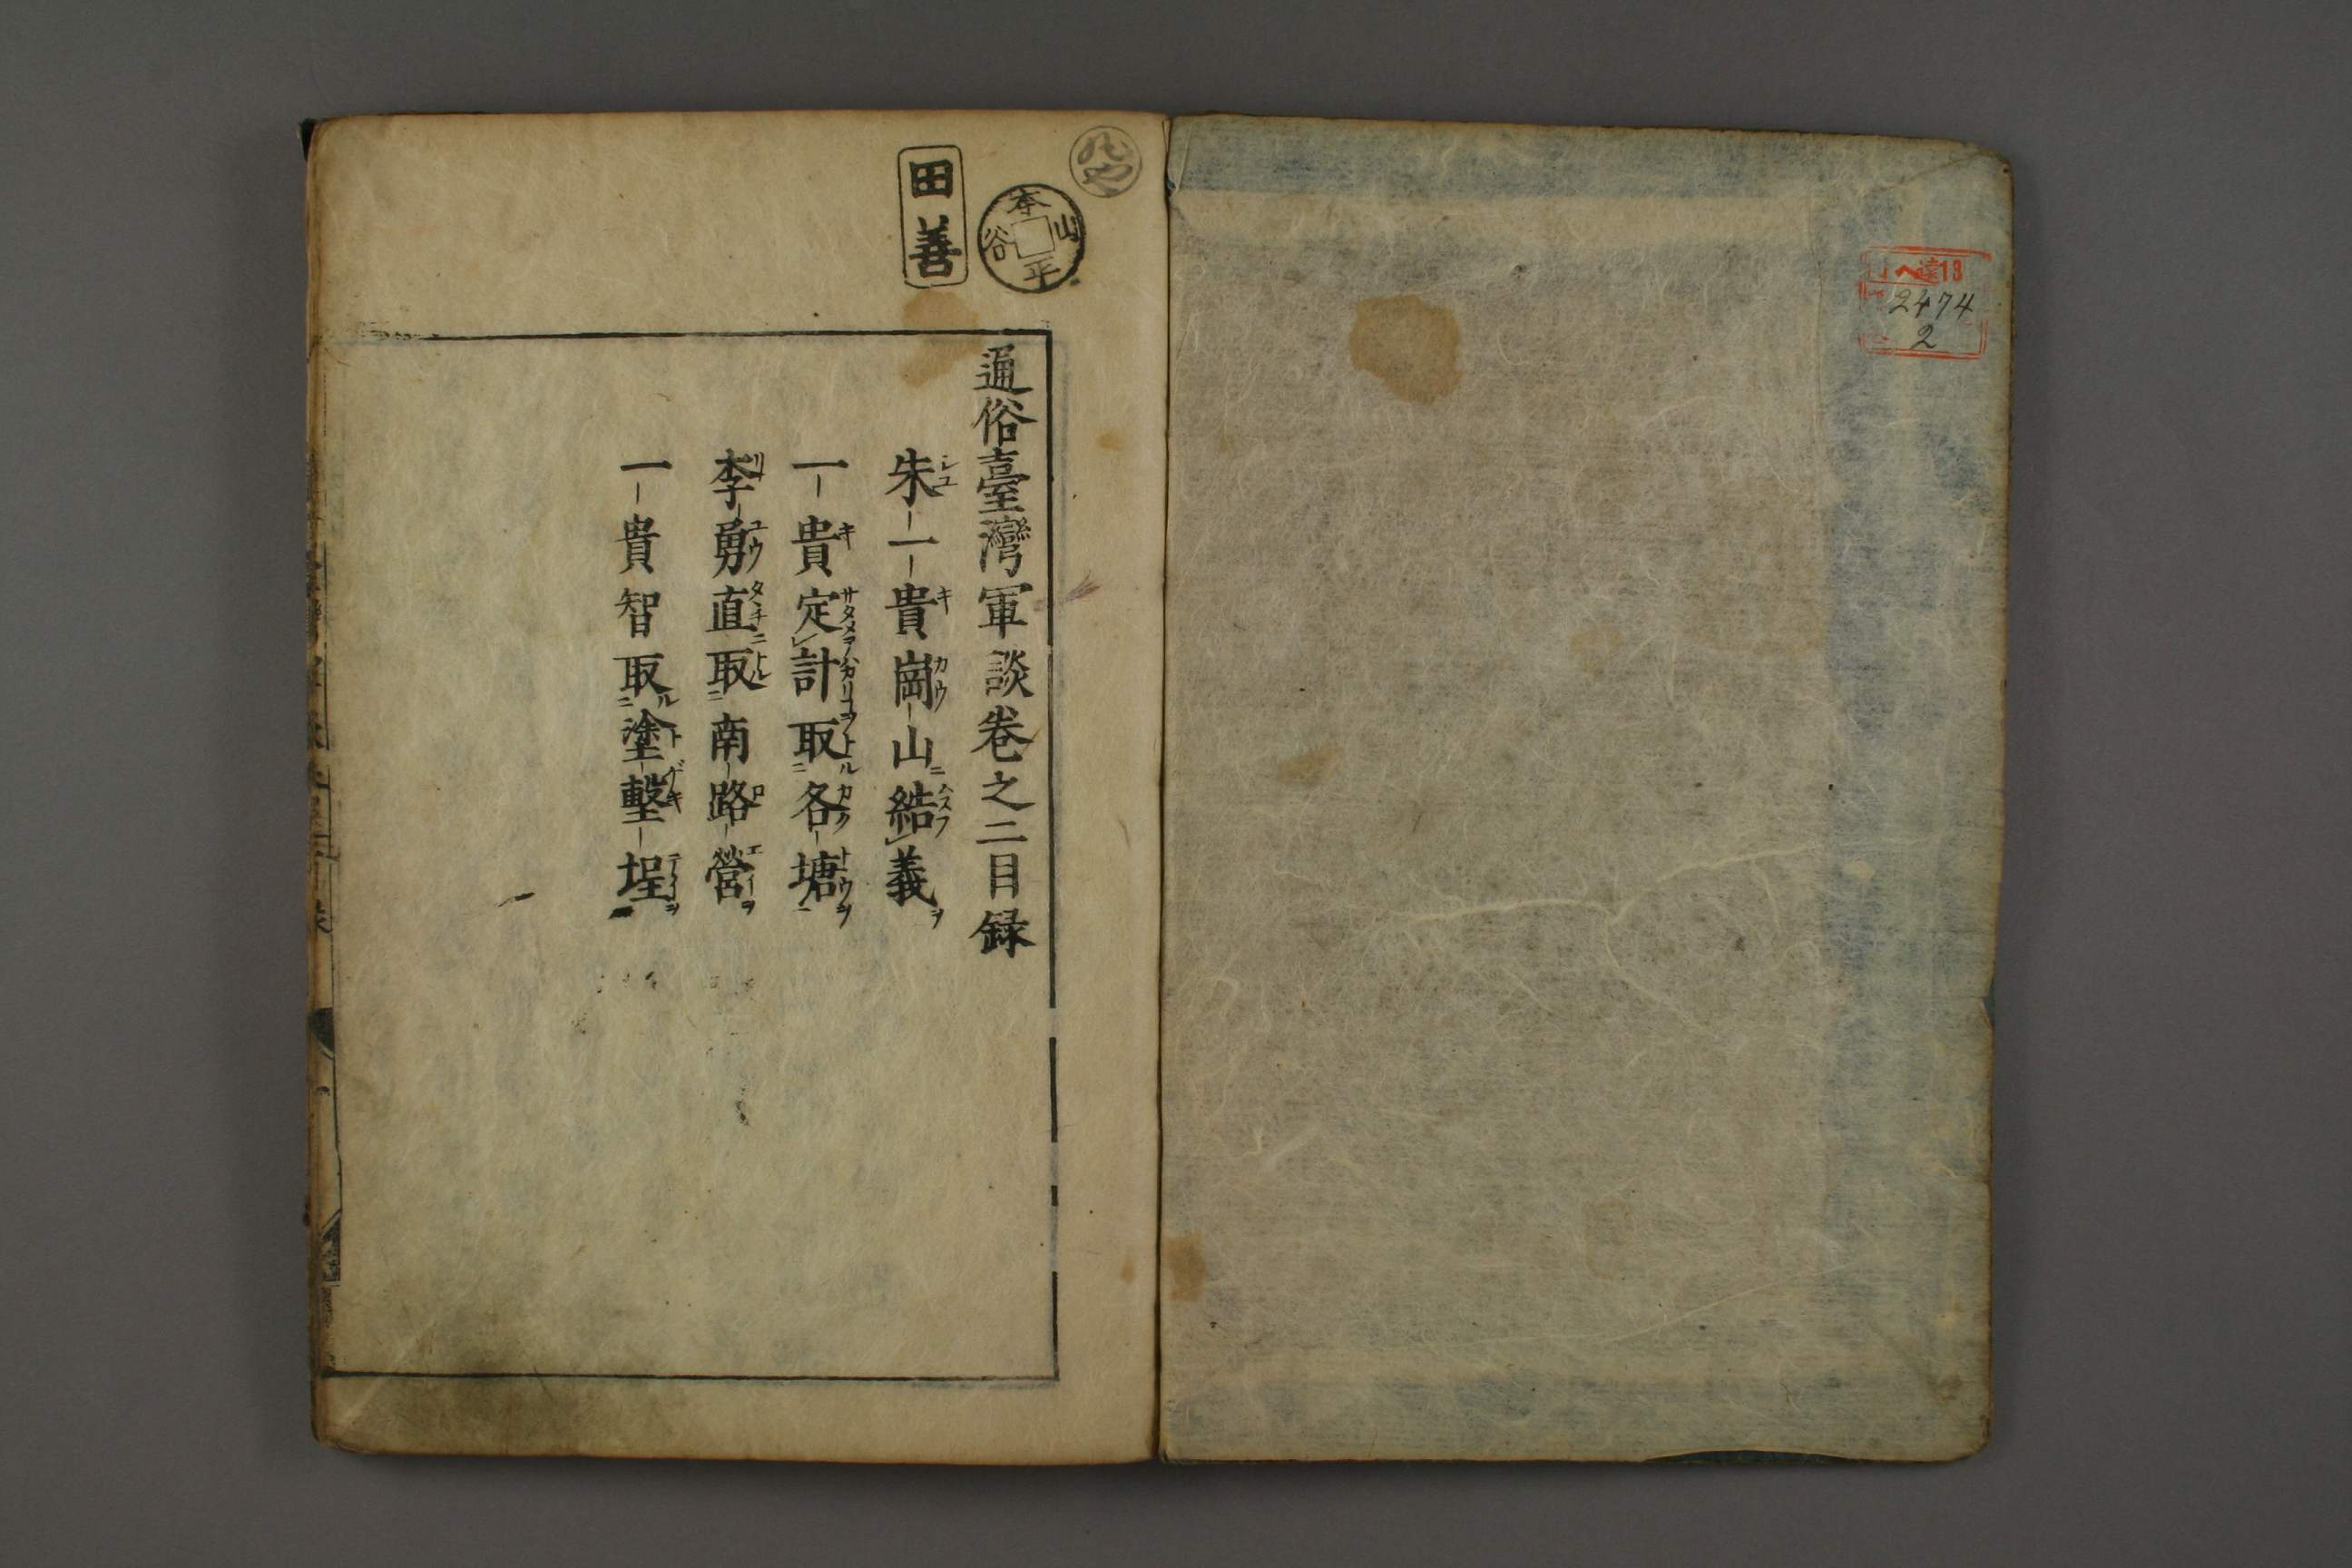 ヘ遠13
2474
2
のや
本山平谷
田善
通俗臺灣軍談卷之二目録
朱一貴崗山結義
一貴定計取各塘
李勇直取南路營
一貴智取塗墼埕